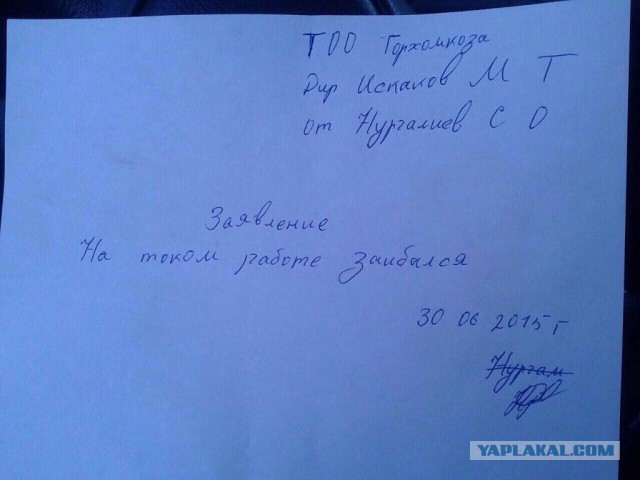 ТОО Горхомкоза
Дир Искаков М Т
от Нургалиев С О
Заявление
На током работе заибался
30 06 2015 г
Нургам
YAPLAKAL.COM